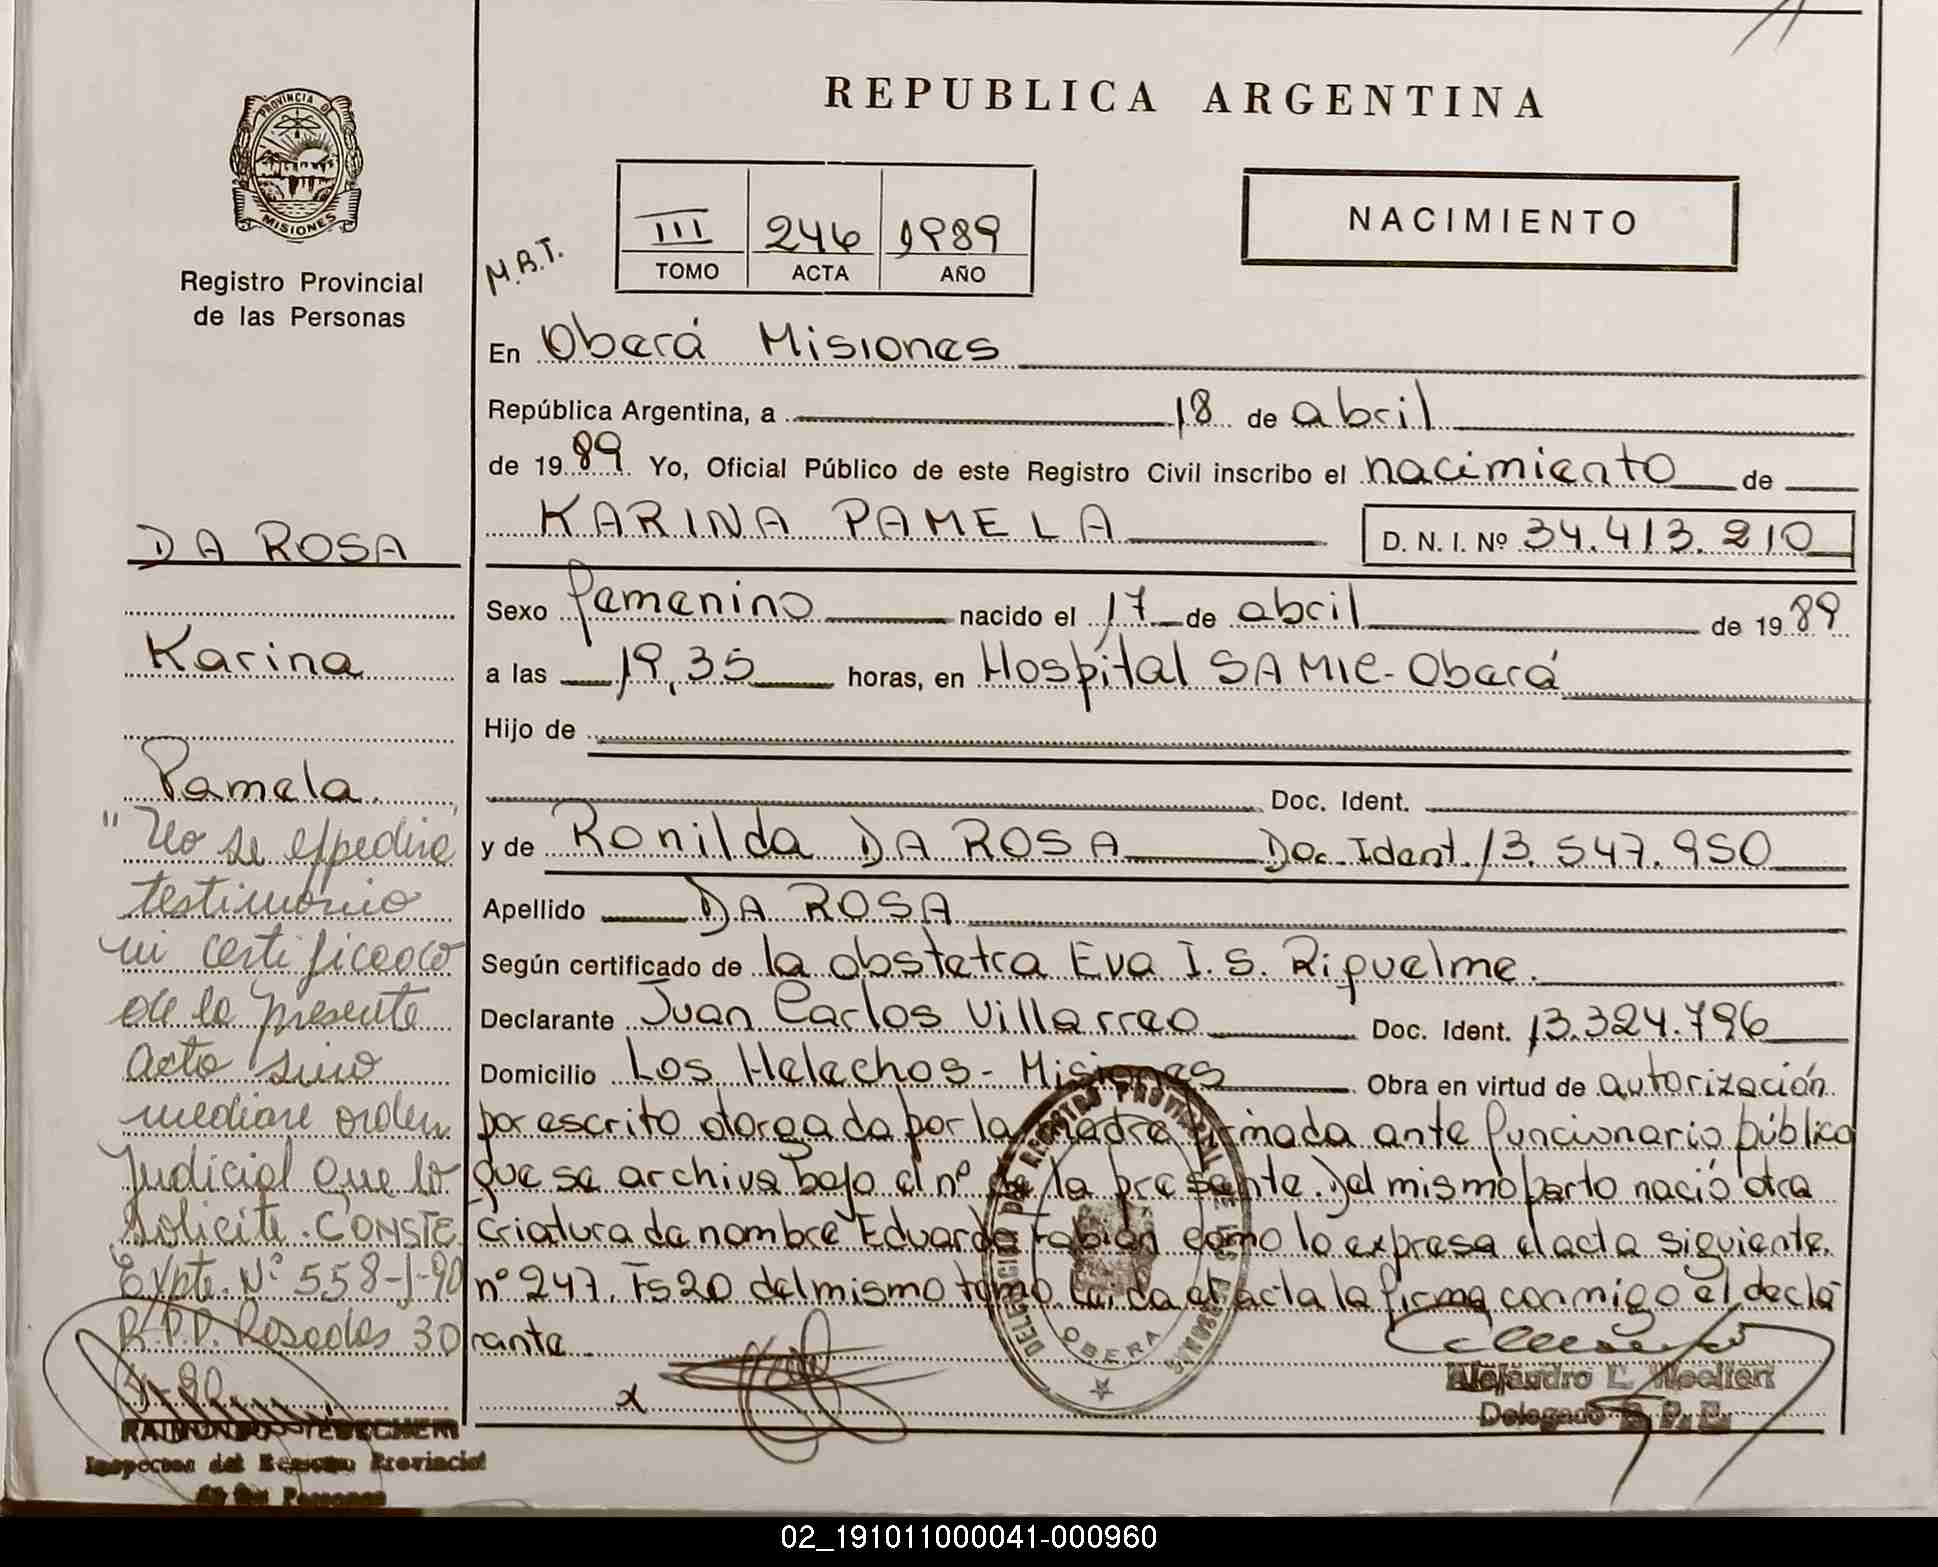 REPUBLICA ARGENTINA
PROVINCIA D
MISIONES
Registro Provincial
de las Personas
M.B.T.
III 246 1989
TOMO ACTA AÑO
NACIMIENTO
En Oberá Misiones
República Argentina, a 18 de abril
de 1989 Yo, Oficial Público de este Registro Civil inscribo el nacimiento de
KARINA PAMELA D. N. I. Nº 34.413.210
Sexo femenino nacido el 17 de abril de 1989
a las 19,35 horas, en Hospital SAMIC - Oberá
Hijo de
Doc. Ident.
y de Ronilda DA ROSA Doc. Ident. 13.547.950
Apellido DA ROSA
Según certificado de la obstetra Eva I. S. Riquelme.
Declarante Juan Carlos Villarreo Doc. Ident. 13.324.796
Domicilio Los Helechos - Misiones Obra en virtud de autorización
por escrito otorgada por la madre firmada ante funcionario público
que se archiva bajo el nº de la presente. Del mismo parto nació otra
criatura de nombre Eduardo Fabian como lo expresa el acta siguiente.
nº 247. Fs 20 del mismo tomo. Leida el acta la firma conmigo el decla
rante
x
DA ROSA
Karina
Pamela.
"No se expedirá
testimonio
ni certificado
de la presente
acta sino
mediare orden
Judicial que lo
solicite. CONSTE
Expte. Nº 558-J-90
R.P.P. Posadas 30
RAIMUNDO
Inspector del Registro Provincial
de las Personas
DELEGACION REGISTRO PROVINCIAL DE LAS PERSONAS
OBERA
Alejandro L.
Delegado R. P. P.
02_191011000041-000960